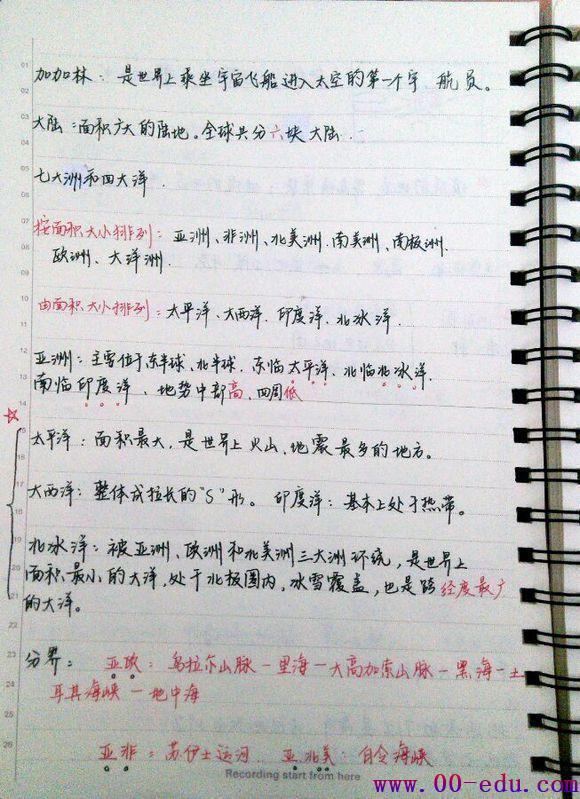 加加林：是世界上乘坐宇宙飞船进入太空的第一个宇 航员。
大陆：面积广大的陆地。全球共分六块大陆
七大洲和四大洋.
按面积大小排列：亚洲、非洲、北美洲、南美洲、南极洲、
欧洲、大洋洲
由面积大小排列：太平洋、大西洋、印度洋、北冰洋.
亚洲：主要位于东半球、北半球、东临太平洋、北临北冰洋、
南临印度洋、地势中部高、四周低
太平洋：面积最大，是世界上火山、地震最多的地方。
大西洋：整体成拉长的"S"形。印度洋：基本上处于热带。
北冰洋：被亚洲、欧洲和北美洲三大洲环绕，是世界上
面积最小的大洋，处于北极圈内，冰雪覆盖，也是跨经度最广
的大洋。
分界：亚欧：乌拉尔山脉—里海—大高加索山脉—黑海—土
耳其海峡—地中海
亚非：苏伊士运河 亚北美：白令海峡
Recording start from here
www.00-edu.com